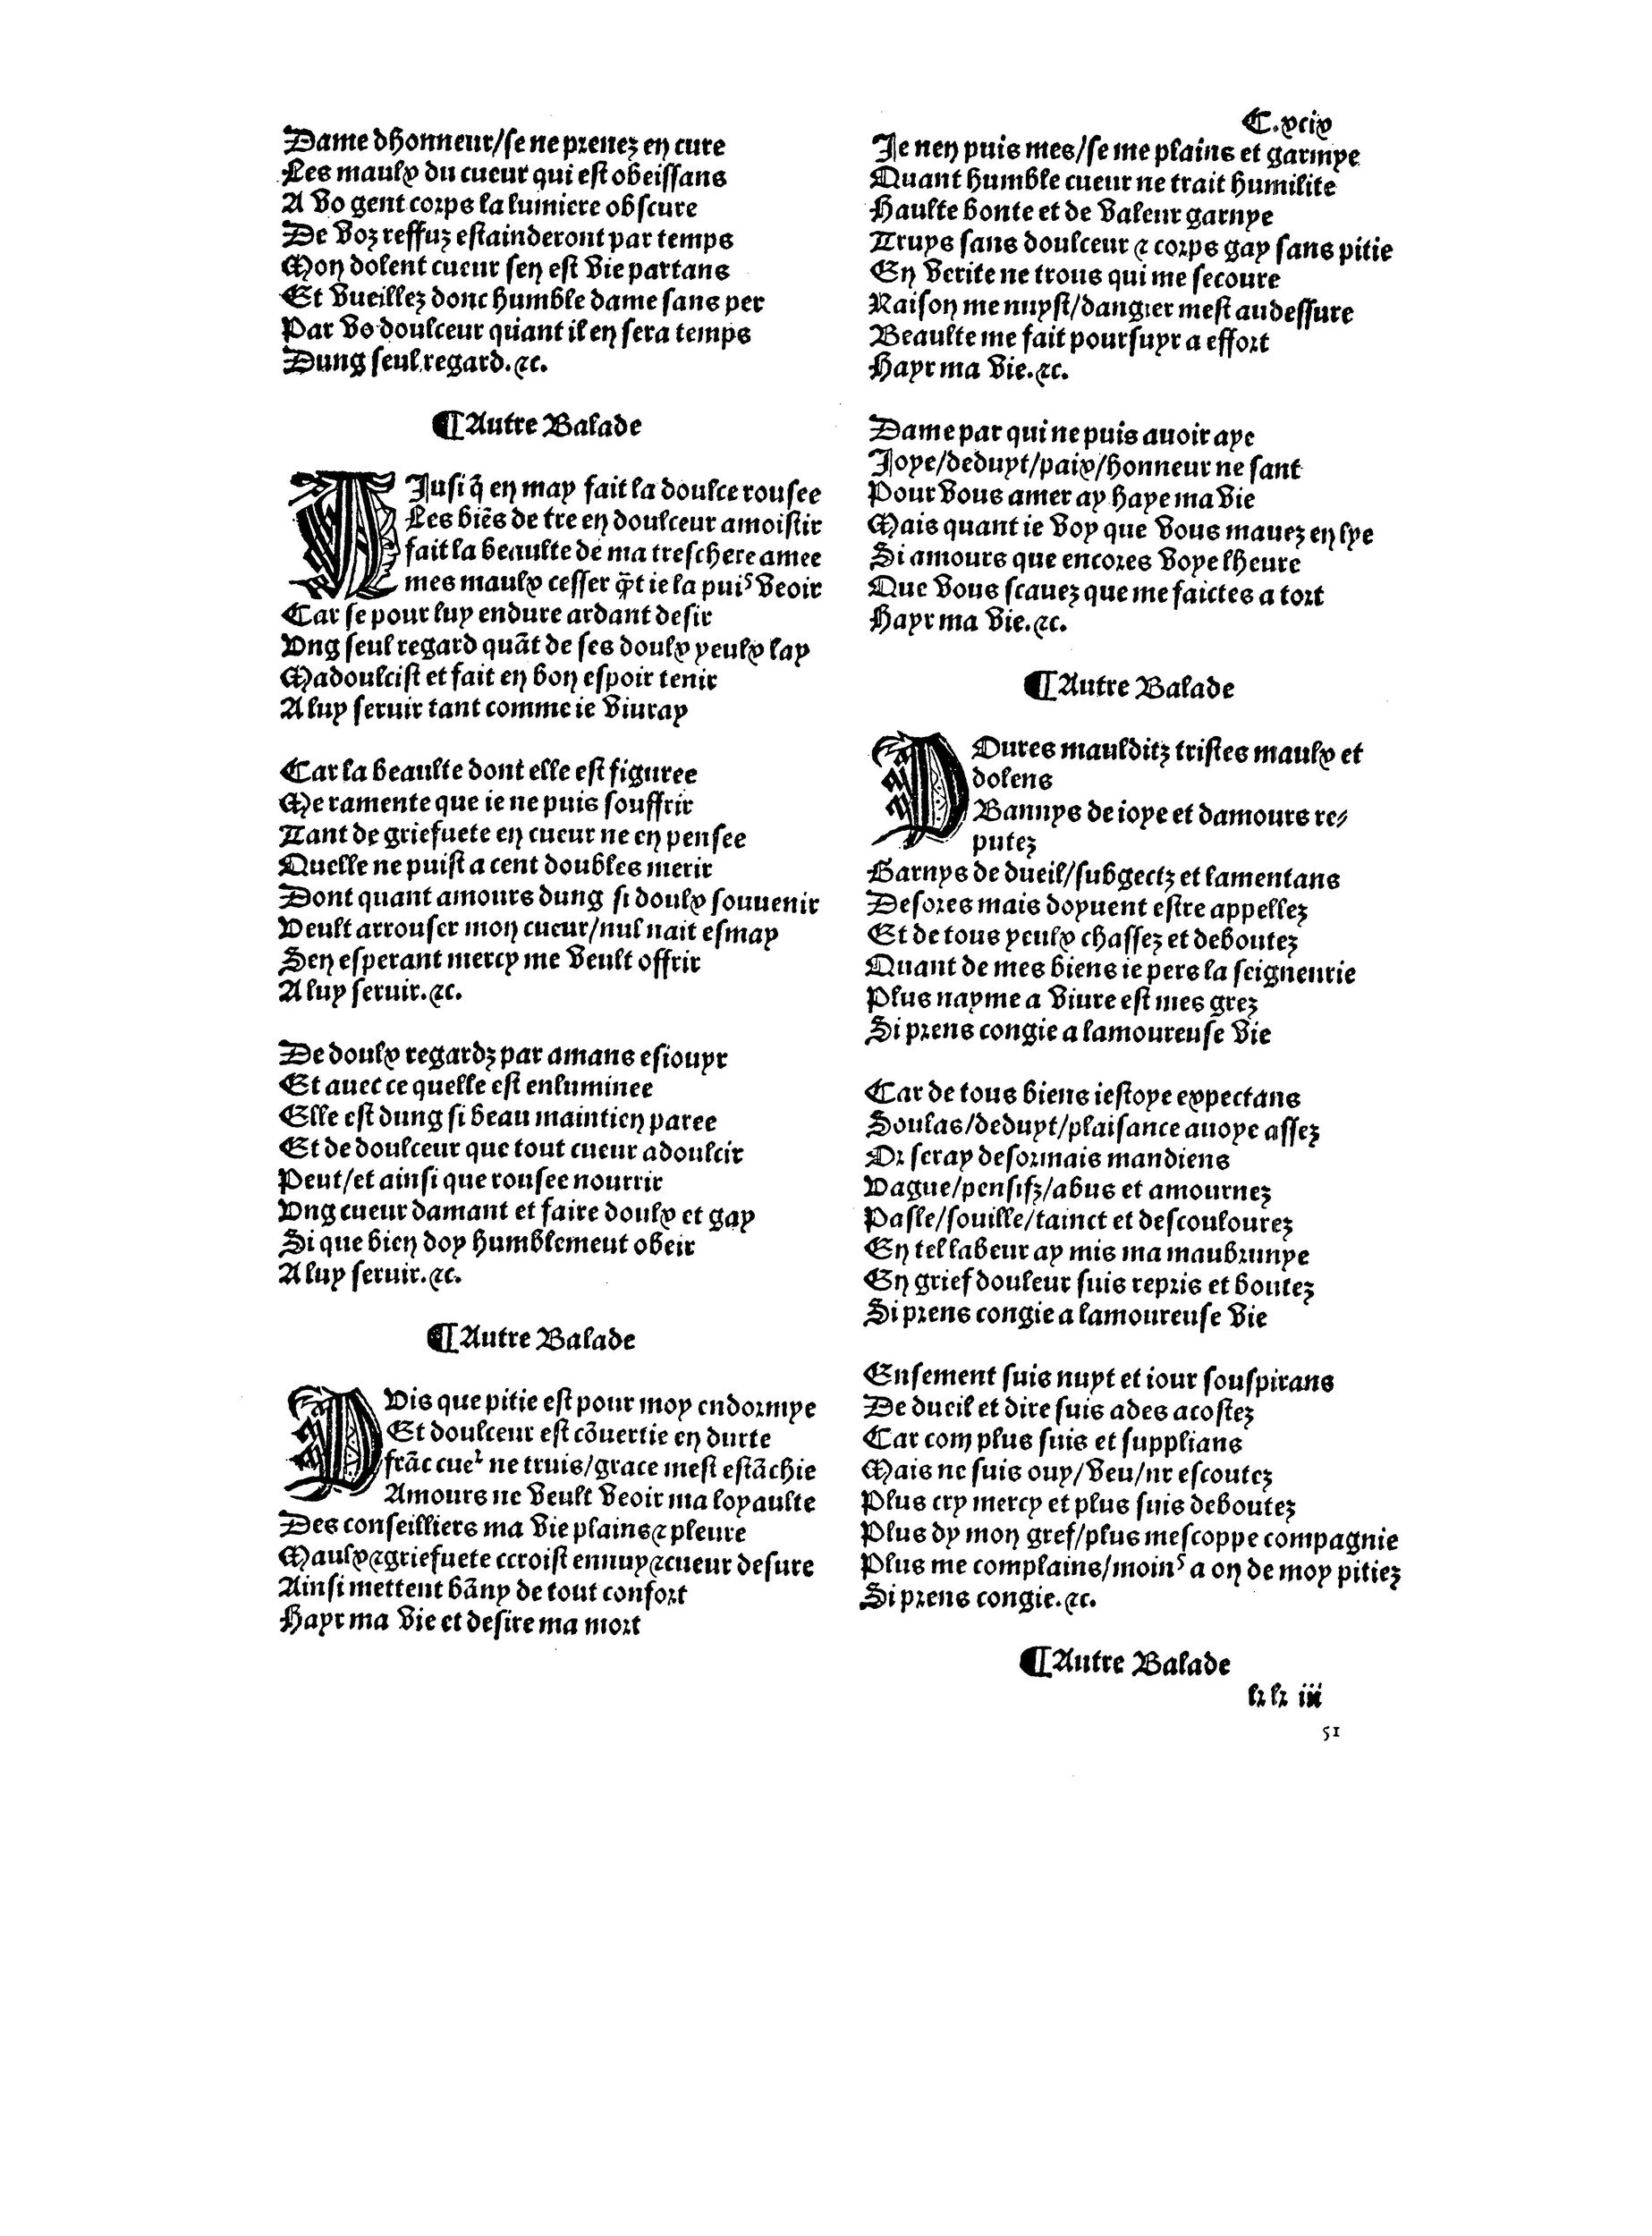 Dame dhonneur/se ne prenez en cure
Les maulx du cueur qui est obeissans
A vo gent corps la lumiere obscure
De voz reffuz estainderont par temps
Mon dolent cueur sen est vie partans
Et vueillez donc humble dame sans per
Par vo doulceur quiant il en sera temps
Dung seul regard.⁊c.
¶Autre Balade
AJusi q̃ en may fait la doulce rousee
Les biẽs de tre en doulceur amoistir
fait la beaulte de ma treschere amee
mes maulx cesser q̃t ie la puiˢ veoir
Car se pour luy endure ardant desir
Vng seul regard quãt de ses doulx yeulx lay
Madoulcist et fait en bon espoir tenir
A luy seruir tant comme ie viuray
Car la beaulte dont elle est figuree
Me ramente que ie ne puis souffrir
Tant de griefuete en cueur ne en pensee
Quelle ne puist a cent doubles merir
Dont quant amours dung si doulx souuenir
Veult arrouser mon cueur/nul nait esmay
Sen esperant mercy me veult offrir
A luy seruir.⁊c.
De doulx regardz par amans esiouyr
Et auec ce quelle est enluminee
Elle est dung si beau maintien paree
Et de doulceur que tout cueur adoulcir
Peut/et ainsi que rousee nourrir
Vng cueur damant et faire doulx et gay
Si que bien doy humblement obeir
A luy seruir.⁊c.
¶Autre Balade
PVis que pitie est pour moy endormye
Et doulceur est cõuertie en durte
frãc cueʳ ne truis/grace mest estãchie
Amours ne veult veoir ma loyaulte
Des conseilliers ma vie plains⁊pleure
Maulx⁊griefuete ccroist ennuy⁊cueur desure
Ainsi mettent bãny de tout confort
Hayr ma vie et desire ma mort
C.xcix
Je nen puis mes/se me plains et garmye
Quant humble cueur ne trait humilite
Haulte bonte et de valeur garnye
Truys sans doulceur ⁊ corps gay sans pitie
En verite ne trous qui me secoure
Raison me nuyst/dangier mest audessure
Beaulte me fait poursuyr a effort
Hayr ma vie.⁊c.
Dame par qui ne puis auoir aye
Joye/deduyt/paix/honneur ne sant
Pour vous amer ay haye ma vie
Mais quant ie voy que vous mauez en lye
Si amours que encores voye lheure
Que vous scauez que me faictes a tort
Hayr ma vie.⁊c.
¶Autre Balade
DOures maulditz tristes maulx et
dolens
Bannys de ioye et damours re⸗
putez
Garnys de dueil/subgectz et lamentans
Desores mais doyuent estre appellez
Et de tous yeulx chassez et deboutez
Quant de mes biens ie pers la seigneurie
Plus nayme a viure est mes grez
Si prens congie a lamoureuse vie
Car de tous biens iestoye expectans
Soulas/deduyt/plaisance auoye assez
Or seray desormais mandiens
Vague/pensifz/abus et amournez
Pasle/souille/tainct et descoulourez
En tel labeur ay mis ma maubrunye
En grief douleur suis repris et boutez
Si prens congie a lamoureuse vie
Ensement suis nuyt et iour souspirans
De dueil et dire suis ades acostez
Car com plus suis et supplians
Mais ne suis ouy/veu/ne escoutez
Plus cry mercy et plus suis deboutez
Plus dy mon gref/plus mescoppe compagnie
Plus me complains/moinˢ a on de moy pitiez
Si prens congie.⁊c.
¶Autre Balade
lr lr iii
51